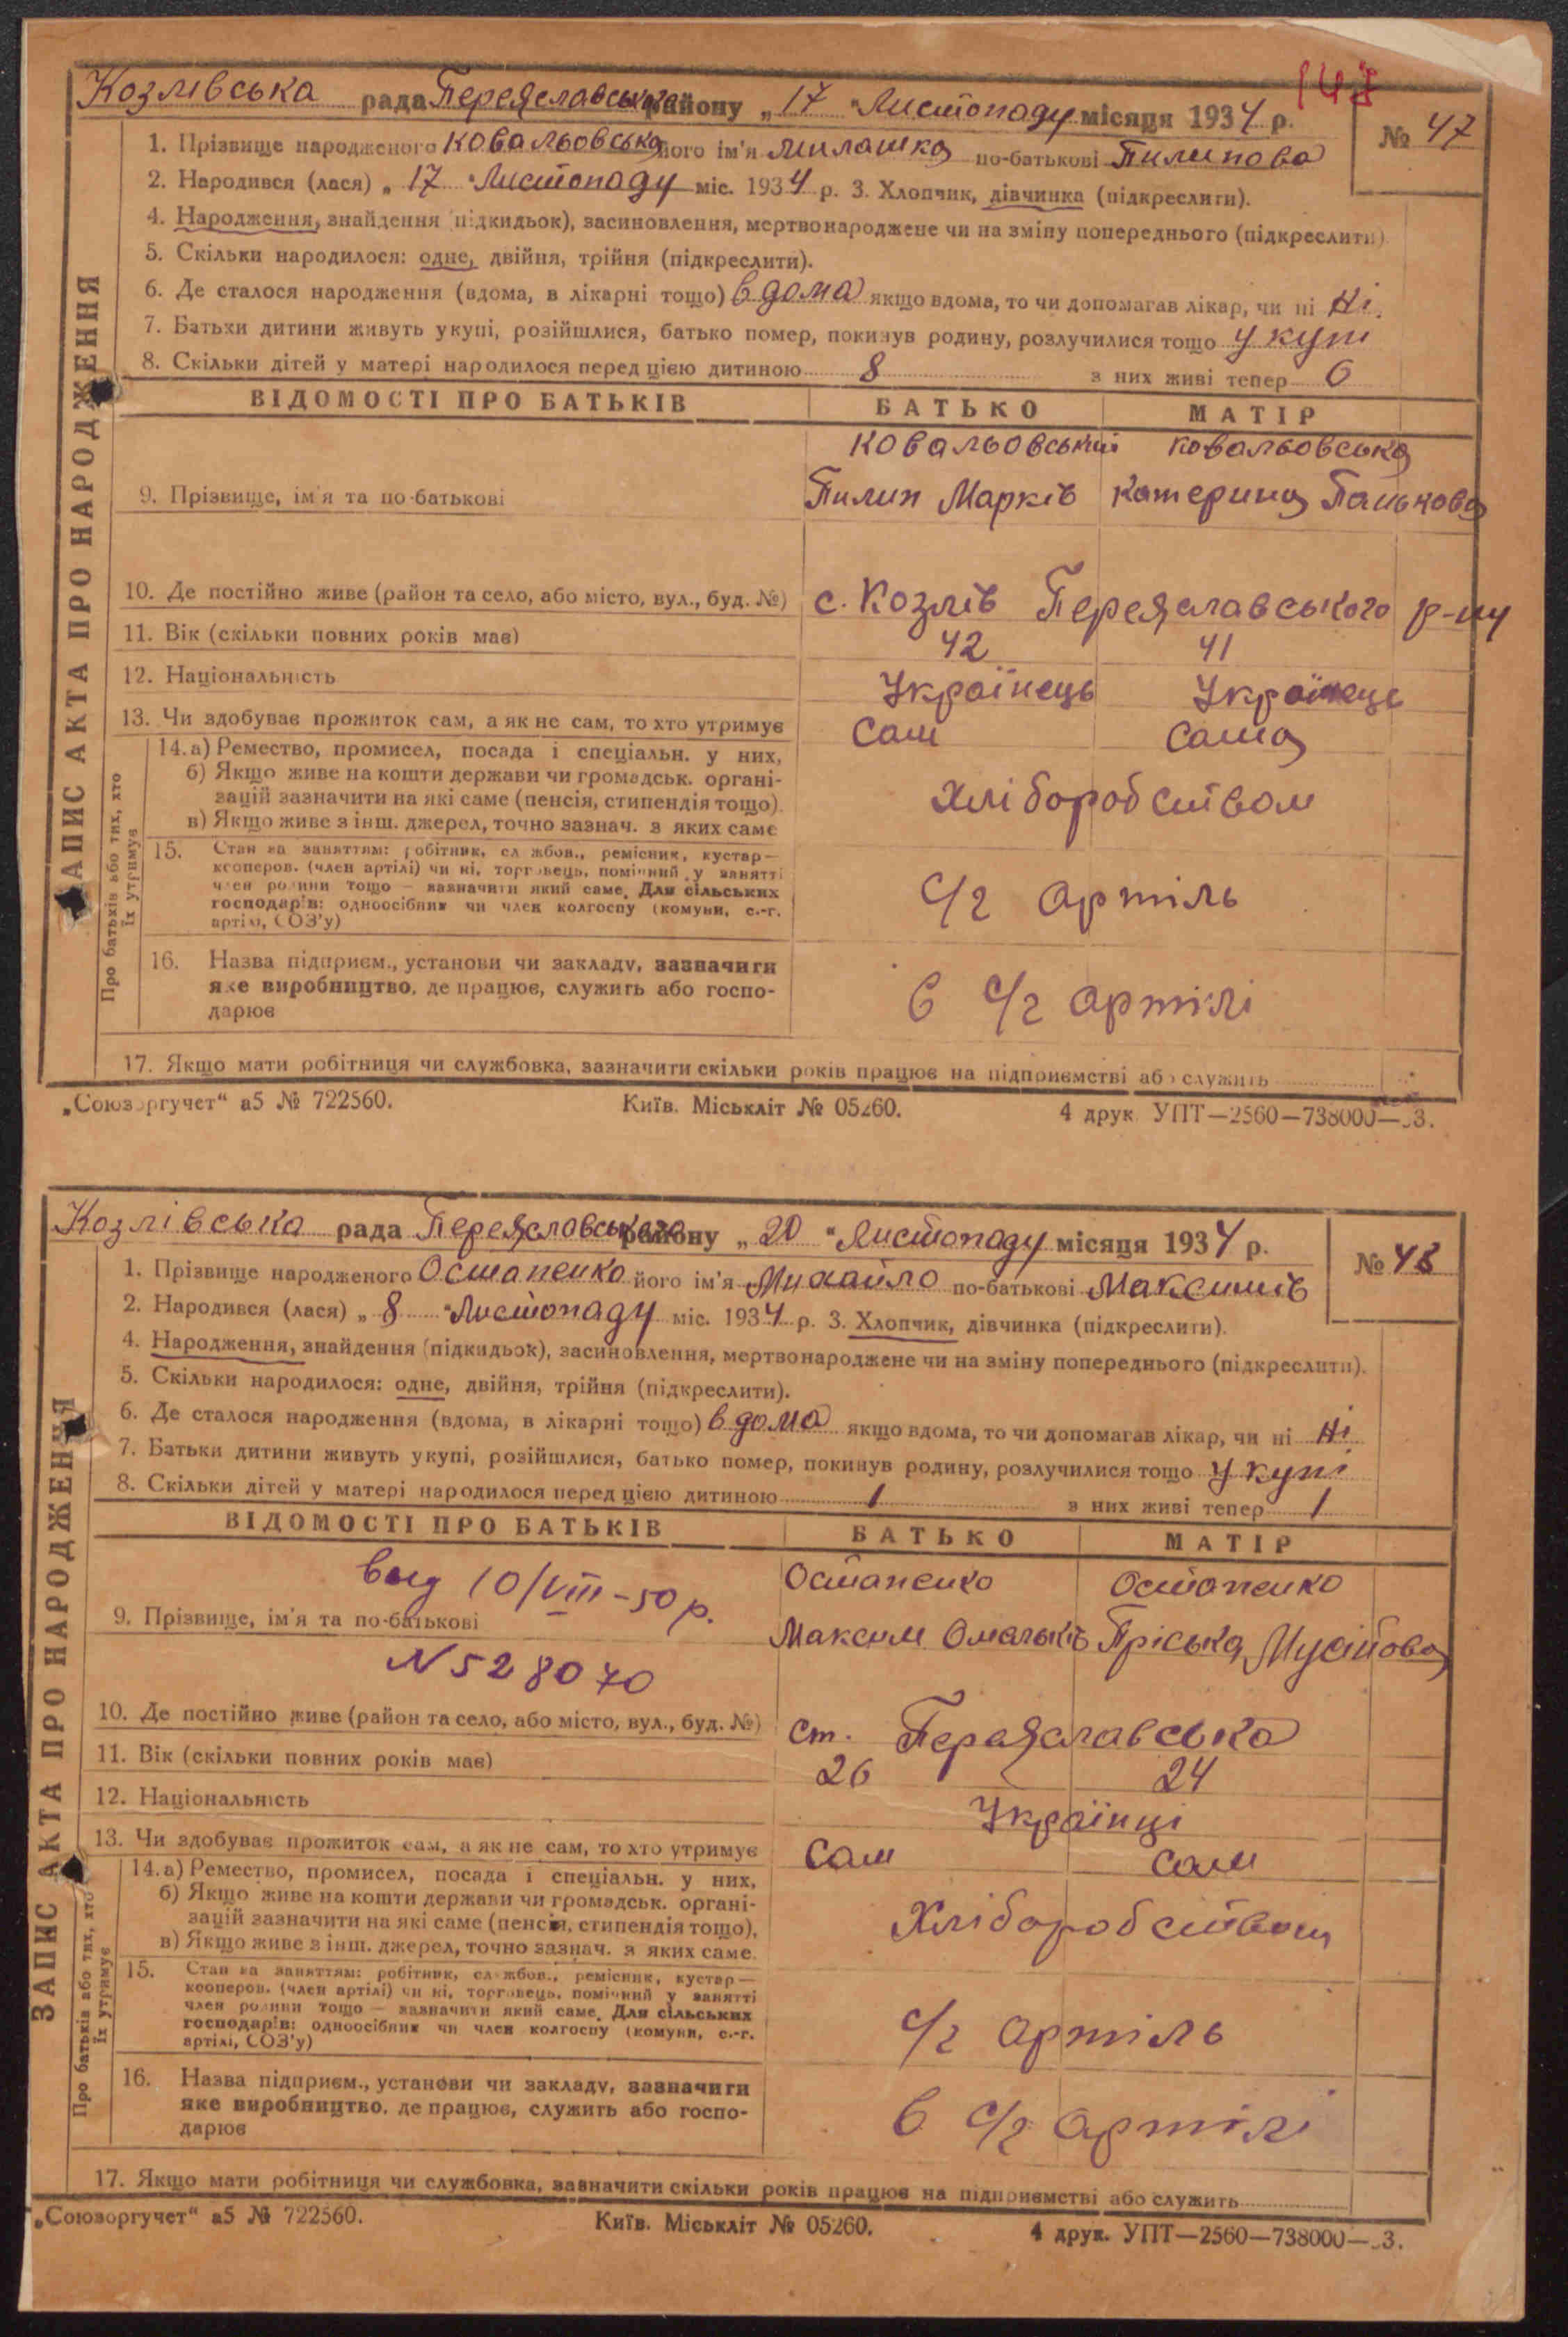 147
Козлівська рада Переяславського району „ 17 " Листопаду місяця 1934 р.
№ 47
1. Прізвище народженого Ковальовська його ім'я Милашка по-батькові Пилипова
2. Народився (лася) „ 17 " Листопаду міс. 1934 р. 3. Хлопчик, дівчинка (підкреслити).
4. Народження, знайдення (підкидьок), засиновлення, мертвонароджене чи на зміну попереднього (підкреслити)
5. Скільки народилося: одне, двійня, трійня (підкреслити).
6. Де сталося народження (вдома, в лікарні тощо) вдома якщо вдома, то чи допомагав лікар, чи ні Ні.
7. Батьки дитини живуть укупі, розійшлися, батько помер, покинув родину, розлучилися тощо У купі
8. Скільки дітей у матері народилося перед цією дитиною 8 з них живі тепер 6
ЗАПИС АКТА ПРО НАРОДЖЕННЯ
ВІДОМОСТІ ПРО БАТЬКІВ БАТЬКО МАТІР
Ковальовський Ковальовська
9. Прізвище, ім'я та по-батькові Пилип Марків Катерина Панькова
10. Де постійно живе (район та село, або місто, вул., буд. №) с. Козлів Переяславського р-ну
11. Вік (скільки повних років має) 42 41
12. Національність Українець Українець
13. Чи здобуває прожиток сам, а як не сам, то хто утримує Сам Сама
Про батьків або тих, хто їх утримує
14. а) Ремество, промисел, посада і спеціальн. у них,
б) Якщо живе на кошти держави чи громадськ. органі-
зацій зазначити на які саме (пенсія, стипендія тощо). Хліборобством
в) Якщо живе з інш. джерел, точно зазнач. з яких саме
15. Стан за заняттям: робітник, службов., ремісник, кустар—
кооперов. (член артілі) чи ні, торговець, помічний у занятті
член родини тощо — зазначити який саме. Для сільських
господарів: одноосібник чи член колгоспу (комуни, с.-г. С/г артіль
артілі, СОЗ'у)
16. Назва підприєм., установи чи закладу, зазначити
яке виробництво, де працює, служить або госпо- в С/г артілі
дарює
17. Якщо мати робітниця чи службовка, зазначити скільки років працює на підприємстві або служить
„Союзоргучет“ а5 № 722560. Київ. Міськліт № 05260. 4 друк. УПТ—2560—738000—33.
Козлівська рада Переяславського району „ 20 " Листопаду місяця 1934 р.
№ 48
1. Прізвище народженого Остапенко його ім'я Михайло по-батькові Максимів
2. Народився (лася) „ 8 " Листопаду міс. 1934 р. 3. Хлопчик, дівчинка (підкреслити).
4. Народження, знайдення (підкидьок), засиновлення, мертвонароджене чи на зміну попереднього (підкреслити).
5. Скільки народилося: одне, двійня, трійня (підкреслити).
6. Де сталося народження (вдома, в лікарні тощо) вдома якщо вдома, то чи допомагав лікар, чи ні Ні
7. Батьки дитини живуть укупі, розійшлися, батько помер, покинув родину, розлучилися тощо У купі
8. Скільки дітей у матері народилося перед цією дитиною 1 з них живі тепер 1
ЗАПИС АКТА ПРО НАРОДЖЕННЯ
ВІДОМОСТІ ПРО БАТЬКІВ БАТЬКО МАТІР
10/VIII-50 р. Остапенко Остапенко
9. Прізвище, ім'я та по-батькові Максим Омельків Пріська Мусійова
N 528070
10. Де постійно живе (район та село, або місто, вул., буд. №) ст. Переяславська
11. Вік (скільки повних років має) 26 24
12. Національність Українці
13. Чи здобуває прожиток сам, а як не сам, то хто утримує Сам Сам
Про батьків або тих, хто їх утримує
14. а) Ремество, промисел, посада і спеціальн. у них,
б) Якщо живе на кошти держави чи громадськ. органі-
зацій зазначити на які саме (пенсія, стипендія тощо), Хліборобством
в) Якщо живе з інш. джерел, точно зазнач. з яких саме.
15. Стан за заняттям: робітник, службов., ремісник, кустар—
кооперов. (член артілі) чи ні, торговець, помічний у занятті
член родини тощо — зазначити який саме. Для сільських
господарів: одноосібник чи член колгоспу (комуни, с.-г. С/г артіль
артілі, СОЗ'у)
16. Назва підприєм., установи чи закладу, зазначити
яке виробництво, де працює, служить або госпо- в С/г артілі
дарює
17. Якщо мати робітниця чи службовка, зазначити скільки років працює на підприємстві або служить
„Союзоргучет“ а5 № 722560. Київ. Міськліт № 05260. 4 друк. УПТ—2560—738000—33.